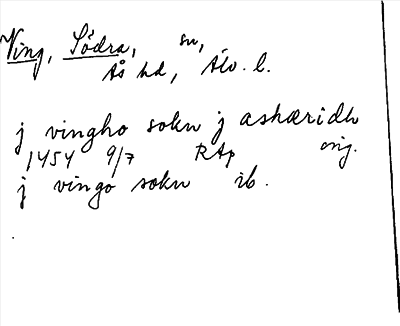 Ving, Södra, sn,
Ås hd, Älv. l.
j vingho sokn j askæridh
1454 9/7 RAp orig.
j vingo sokn ib.